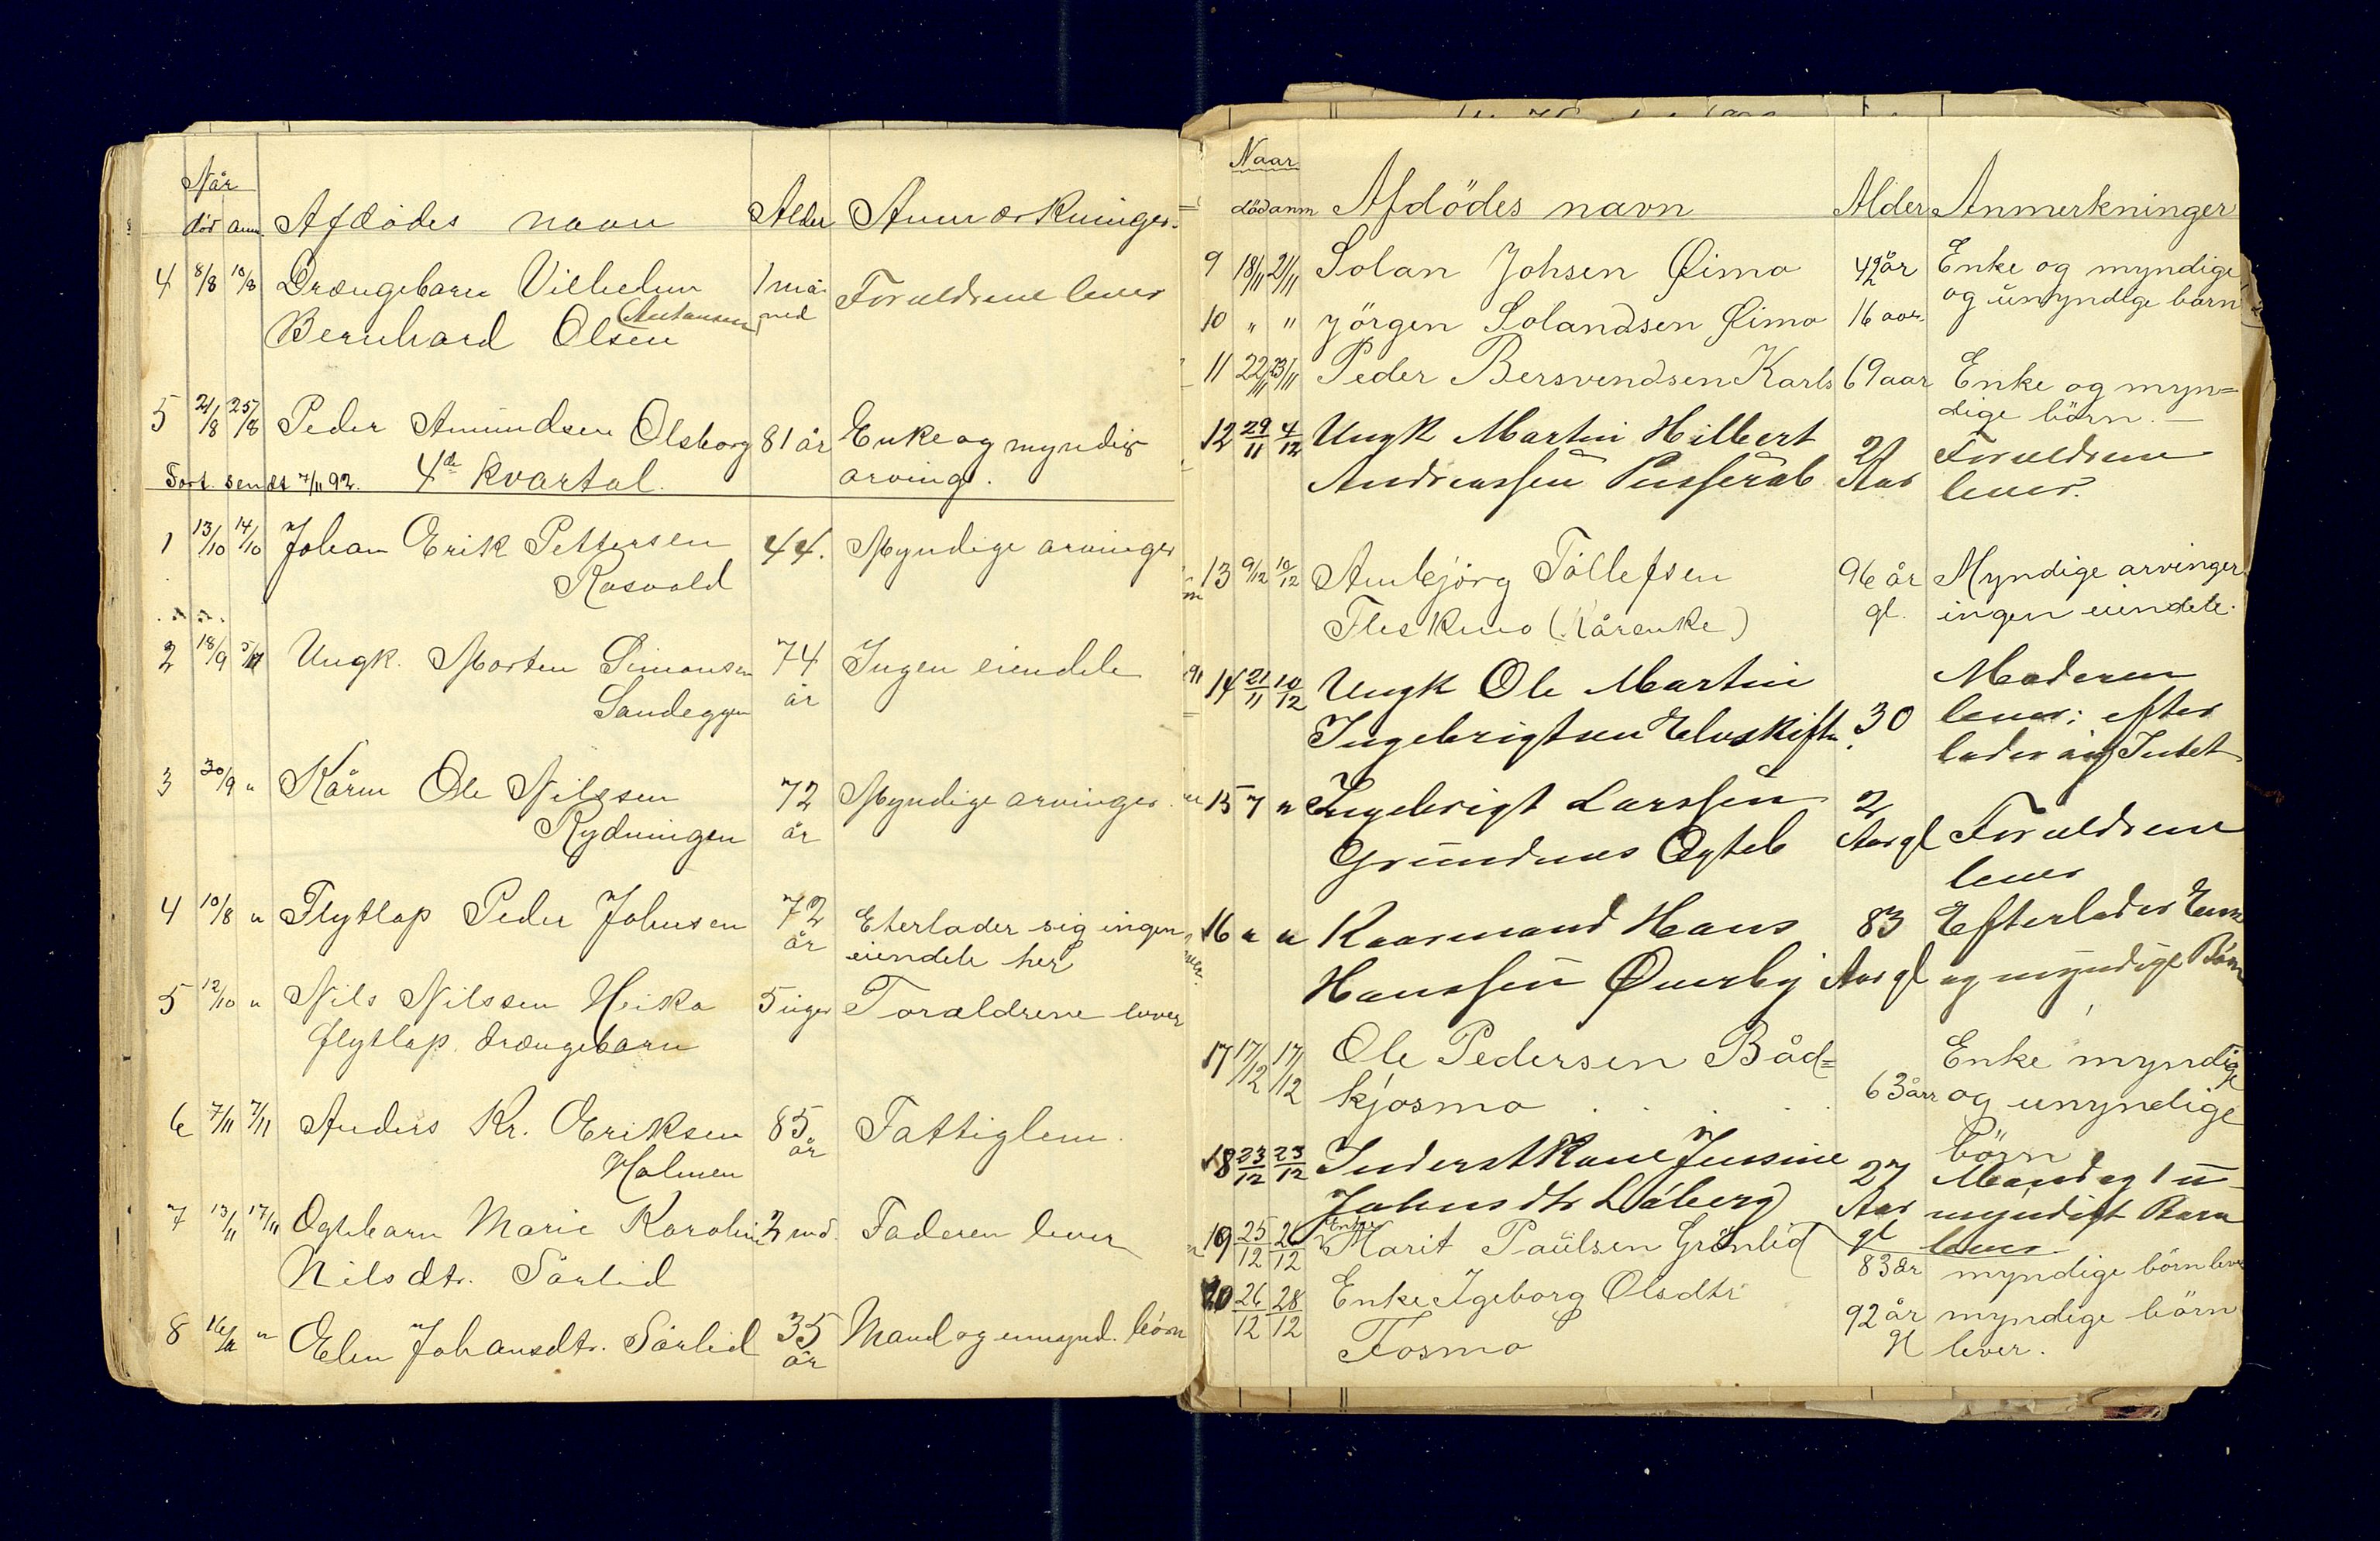 Når
död anm. Afdödes navn Alder Anmærkninger.
4 8/8 10/8 Drængebarn Vilhelm 1 må- Foræeldrene lever
(Antonsen) ned
Bernhard Olsen
5 21/8 25/8 Peder Amundsen Olsborg 81 år Enke og myndig
arving.
Fort. sendt 7/11 92. 4de Kvartal.
1 13/10 14/10 Johan Erik Pettersen 44. Myndige arvinger
Rosvold
2 18/9 5/11 Ungk. Morten Simonsen 74 Ingen eiendele
Sandeggen år
3 30/9 " Kårm Ole Nilssen 72 Myndige arvinger.
Rydningen år
4 10/8 " Flytlap Peder Johnsen 72 Eterlader sig ingen
år eiendele her
5 12/10 " Nils Nilssen Heika 5 uger Forældrene lever
flytlap. drængebarn
6 7/11 7/11 Anders Kr. Eriksen 85 Fattiglem.
Holmen år
7 13/11 17/11 Ogtebarn Marie Karoline 2 md. Faderen lever
Nilsdtr. Sörlid
8 16/11 " Elen Johansdtr. Sörlid 35 Mand og umynd. börn
år
Naar
död anm Afdödes navn Alder Anmerkninger
9 18/11 21/11 Solan Johsen Øimo 42 år Enke og myndige
og umyndige börn
10 " " Jörgen Solandsen Øimo 16 aar
11 22/11 23/11 Peder Bersvendsen Karls 69 aar Enke og myn=
dige börn. —
12 29/11 4/12 Ungk Martin Hilbert 21 Forældrene
Andreassen Aar lever.
13 9/12 10/12 Anbjörg Tollefsen 96 år Myndige arvinger
Fleskmo (Kårenke) gl. ingen eiendele.
14 21/11 10/12 Ungk Ole Martin Moderen
Ingebrigtsen Elvskiftn. 30 lever; efter
lader sig Intet
15 " " Ingebrigt Larssen 2
Grundnes Ogteb Aar gl Forældrene
lever
16 " " Kaarmand Hans 83 Efterlader Enke
Hanssen Øverby Aar gl og myndige Börn
17 17/12 17/12 Ole Pedersen Båd= Enke myndige
kjosmo . . . . 63 år og umyndige
börn
18 23/12 23/12 Inderst Kone Jensine 27 Mand og 1 u-
Johnsdtr Låberg Aar myndigt Barn
gl lever
19 25/12 26/12 Enke Marit Paulsen Grönlid 83 år myndige börn lever
20 26/12 28/12 Enke Igeborg Olsdtr 92 år myndige börn
Fosmo gl lever.